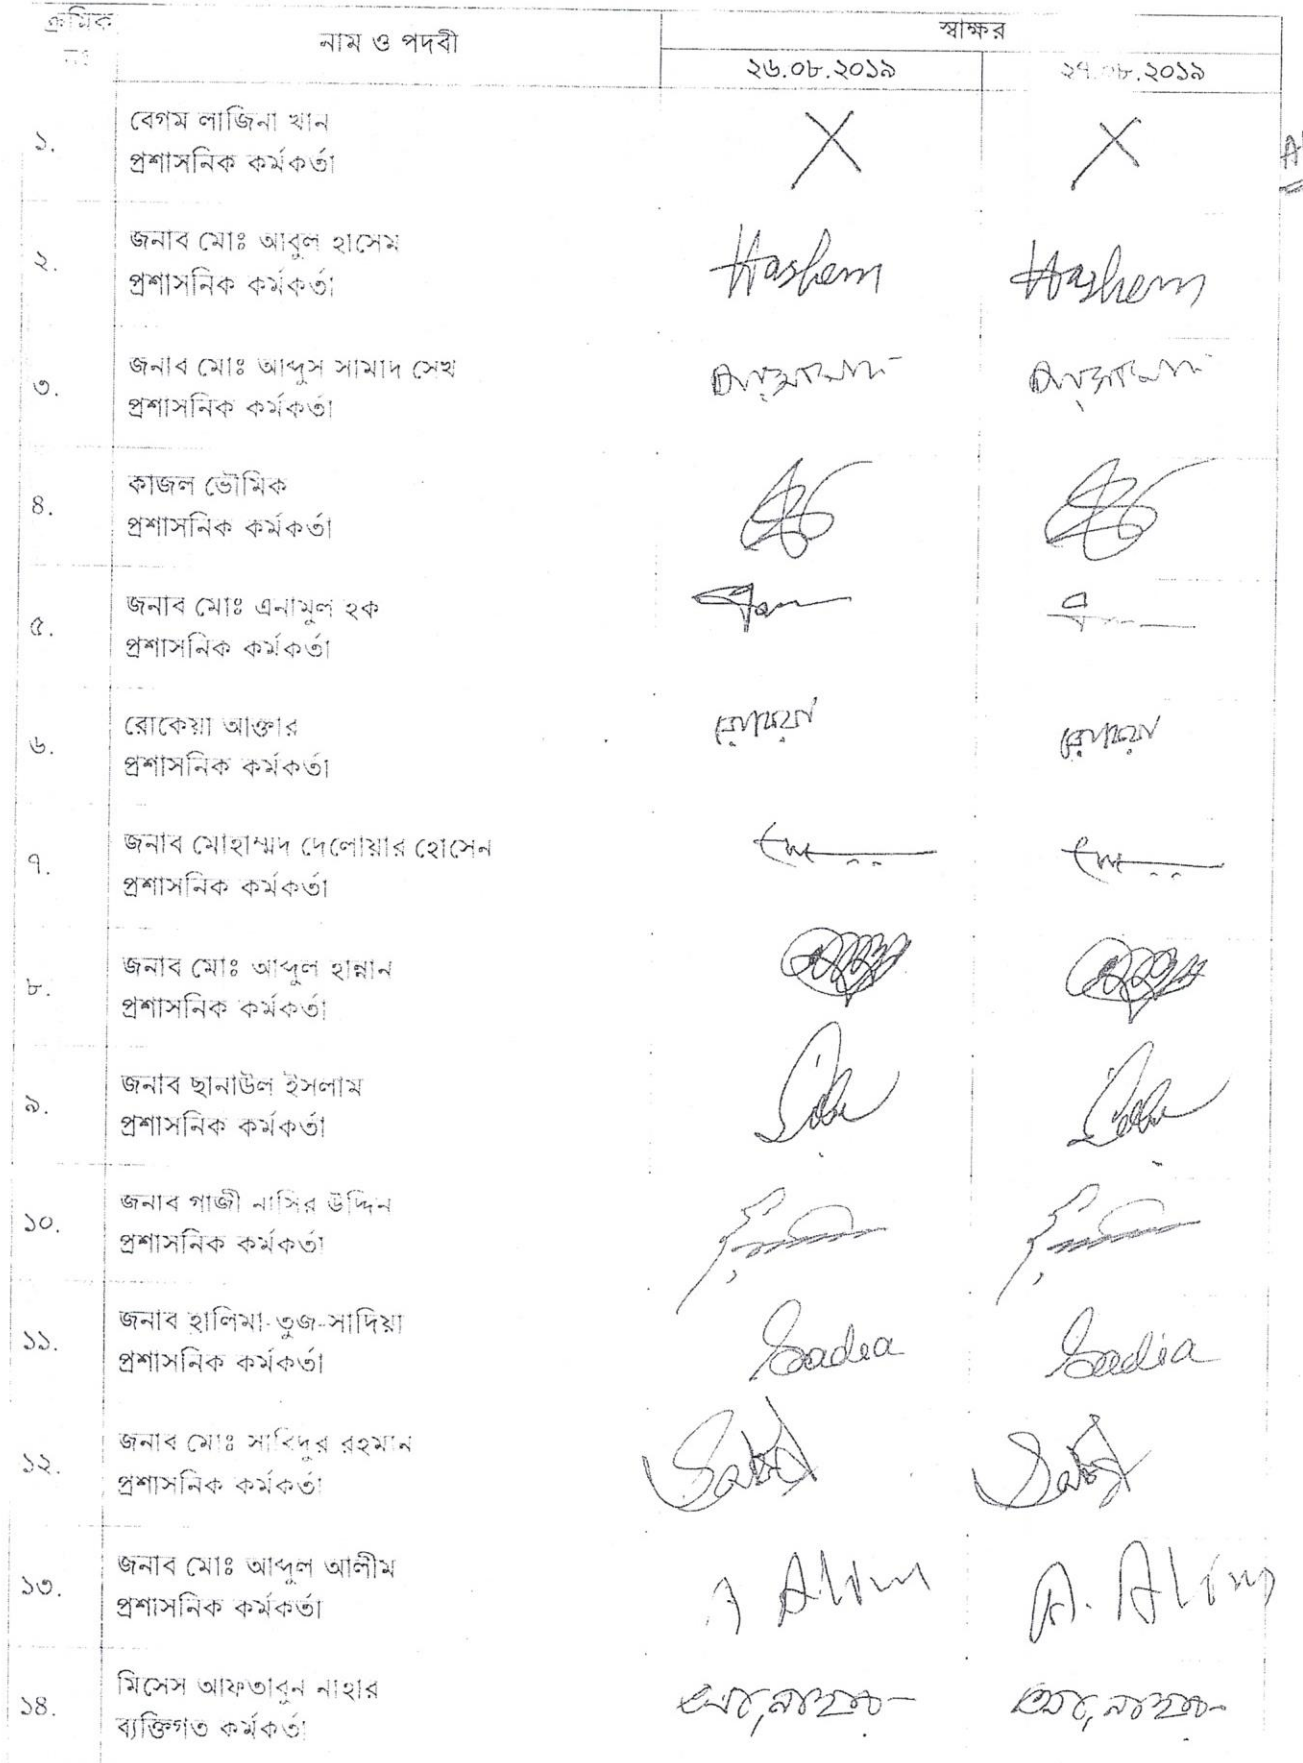 ক্রমিক
নং
নাম ও পদবী
স্বাক্ষর
২৬.০৮.২০১৯
২৭.০৮.২০১৯
১.
বেগম লাজিনা খান
প্রশাসনিক কর্মকর্তা
X
X
২.
জনাব মোঃ আবুল হাসেম
প্রশাসনিক কর্মকর্তা
Hashem
Hashem
৩.
জনাব মোঃ আব্দুস সামাদ সেখ
প্রশাসনিক কর্মকর্তা
৪.
কাজল ভৌমিক
প্রশাসনিক কর্মকর্তা
৫.
জনাব মোঃ এনামুল হক
প্রশাসনিক কর্মকর্তা
৬.
রোকেয়া আক্তার
প্রশাসনিক কর্মকর্তা
রোকেয়া
রোকেয়া
৭.
জনাব মোহাম্মদ দেলোয়ার হোসেন
প্রশাসনিক কর্মকর্তা
৮.
জনাব মোঃ আব্দুল হান্নান
প্রশাসনিক কর্মকর্তা
৯.
জনাব ছানাউল ইসলাম
প্রশাসনিক কর্মকর্তা
১০.
জনাব গাজী নাসির উদ্দিন
প্রশাসনিক কর্মকর্তা
১১.
জনাব হালিমা-তুজ-সাদিয়া
প্রশাসনিক কর্মকর্তা
Sadia
Sadia
১২.
জনাব মোঃ সাবিদুর রহমান
প্রশাসনিক কর্মকর্তা
১৩.
জনাব মোঃ আব্দুল আলীম
প্রশাসনিক কর্মকর্তা
Alim
A. Alim
১৪.
মিসেস আফতাবুন নাহার
ব্যক্তিগত কর্মকর্তা